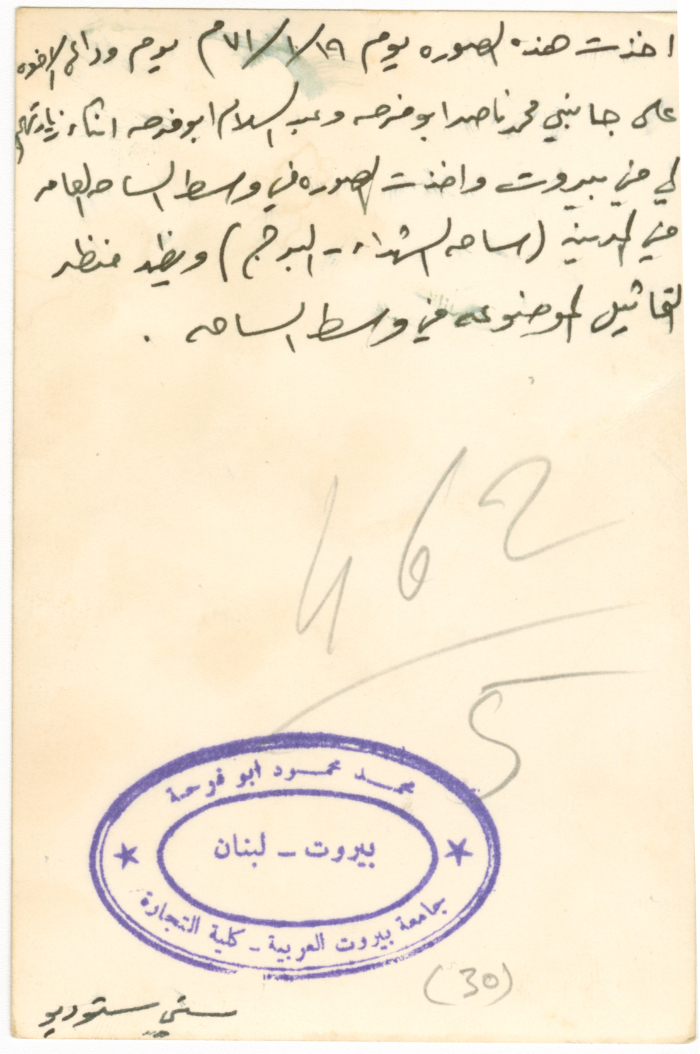 اخذت هذه الصوره يوم ٧١/١/١٩م يوم وداع الاخوه
على جانبي محمد ناصر ابو فرحه وعبد السلام ابو فرحه اثناء زيارتهم
لي في بيروت واخذت الصوره في وسط الساحه العامه
في المدينه (ساحه الشهداء - البرج) ويظهر منظر
التماثيل الموضوعه في وسط الساحه .
462
5
محمد محمود ابو فرحة
بيروت - لبنان
جامعة بيروت العربية - كلية التجارة
(30)
ستي ستوديو